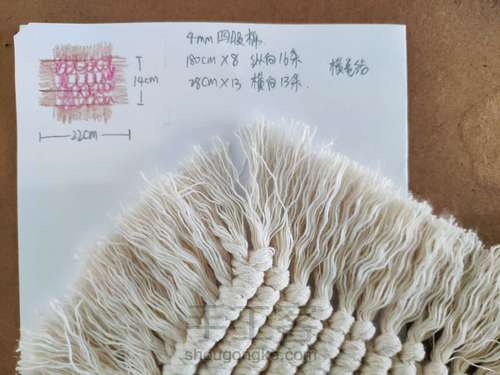 4mm 四股棉
180cm×8 纵向16条
28cm×13 横向13条.
横卷结
14cm
22cm
手工客
shougongke.com